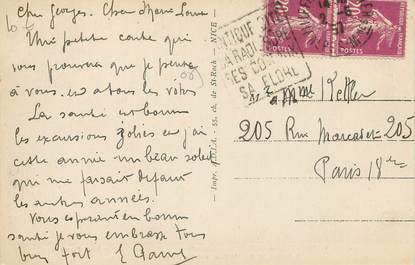 Cher Georges. Chere Marie Louise
Une petite carte qui
vous prouvera que je pense
à vous. et a tous les votres
La santé est bonne
les excursions jolies et j'ai
cette année un beau soleil
qui me faisait defaut
les autres années.
Vous esperant en bonne
santé je vous embrasse tous
bien fort
Impr. - 55, ch. de St-Roch - NICE
SA FLORE
Mme Keller
205 Rue Marcadet 205
Paris 18e